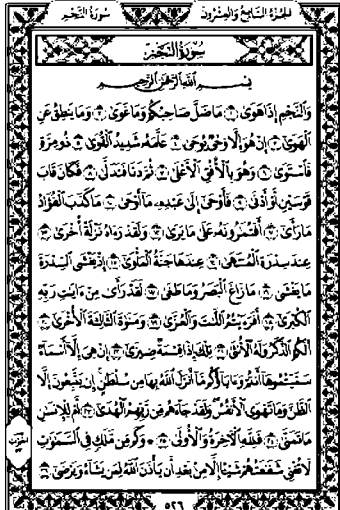 الجزء السابع والعشرون سورة النجم
سورة النجم
بسم الله الرحمن الرحيم
والنجم إذا هوى ١ ما ضل صاحبكم وما غوى ٢ وما ينطق عن
الهوى ٣ إن هو إلا وحي يوحى ٤ علمه شديد القوى ٥ ذو مرة
فاستوى ٦ وهو بالأفق الأعلى ٧ ثم دنا فتدلى ٨ فكان قاب
قوسين أو أدنى ٩ فأوحى إلى عبده ما أوحى ١٠ ما كذب الفؤاد
ما رأى ١١ أفتمارونه على ما يرى ١٢ ولقد رآه نزلة أخرى ١٣
عند سدرة المنتهى ١٤ عندها جنة المأوى ١٥ إذ يغشى السدرة
ما يغشى ١٦ ما زاغ البصر وما طغى ١٧ لقد رأى من آيات ربه
الكبرى ١٨ أفرأيتم اللات والعزى ١٩ ومناة الثالثة الأخرى ٢٠
ألكم الذكر وله الأنثى ٢١ تلك إذا قسمة ضيزى ٢٢ إن هي إلا أسماء
سميتموها أنتم وآباؤكم ما أنزل الله بها من سلطان إن يتبعون إلا
الظن وما تهوى الأنفس ولقد جاءهم من ربهم الهدى ٢٣ أم للإنسان
ما تمنى ٢٤ فلله الآخرة والأولى ٢٥ وكم من ملك في السماوات
لا تغني شفاعتهم شيئا إلا من بعد أن يأذن الله لمن يشاء ويرضى ٢٦
٥٢٦